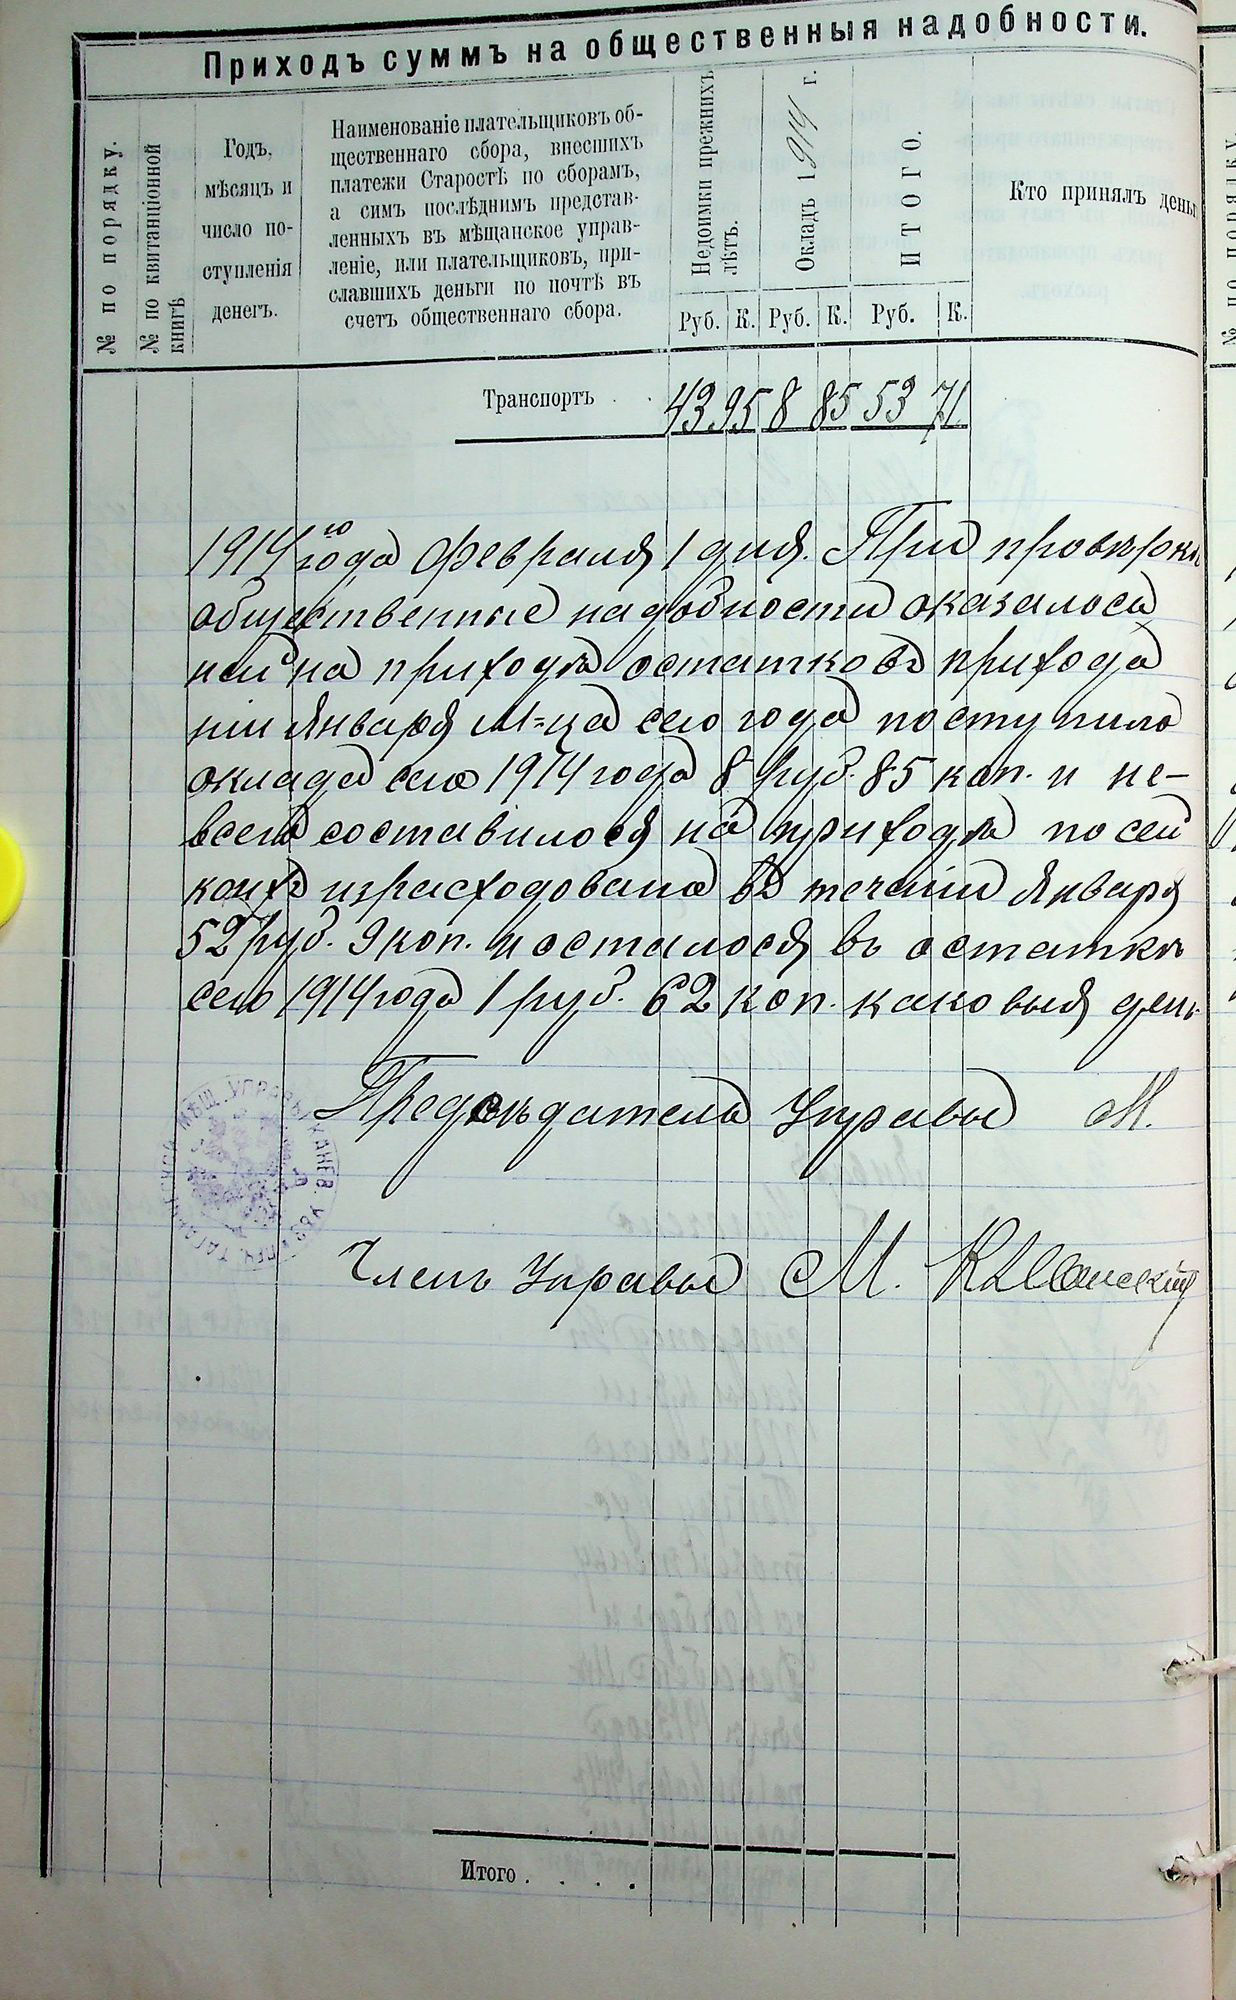 Приходъ суммъ на общественныя надобности.
№ по порядку.
№ по квитанціонной
книгѣ
Годъ,
мѣсяцъ и
число по-
ступленія
денегъ.
Наименованіе плательщиковъ об-
щественнаго сбора, внесшихъ
платежи Старостѣ по сборамъ,
а симъ послѣднимъ представ-
ленныхъ въ мѣщанское управ-
леніе, или плательщиковъ, при-
славшихъ деньги по почтѣ въ
счетъ общественнаго сбора.
Недоимки прежнихъ
лѣтъ.
Руб. К.
Окладъ 1914 г.
Руб. К.
ИТОГО.
Руб. К.
Кто принялъ день
Транспортъ . . 43 95 8 85 53 71
1914го года Февраля 1 дня. При провѣрки
общественные надобности оказалось
на приходѣ остатковъ прихода
Января М-ца сего года поступило
оклада сего 1914 года 8 руб. 85 коп. и не-
всего составилося на приходѣ по сей
израсходовано въ течении Января
52 руб. 9 коп. и осталося въ остатки
сего 1914 года 1 руб. 62 коп. каковыя день
Предсѣдатель Управы М.
Членъ Управы М.
Итого . . . .